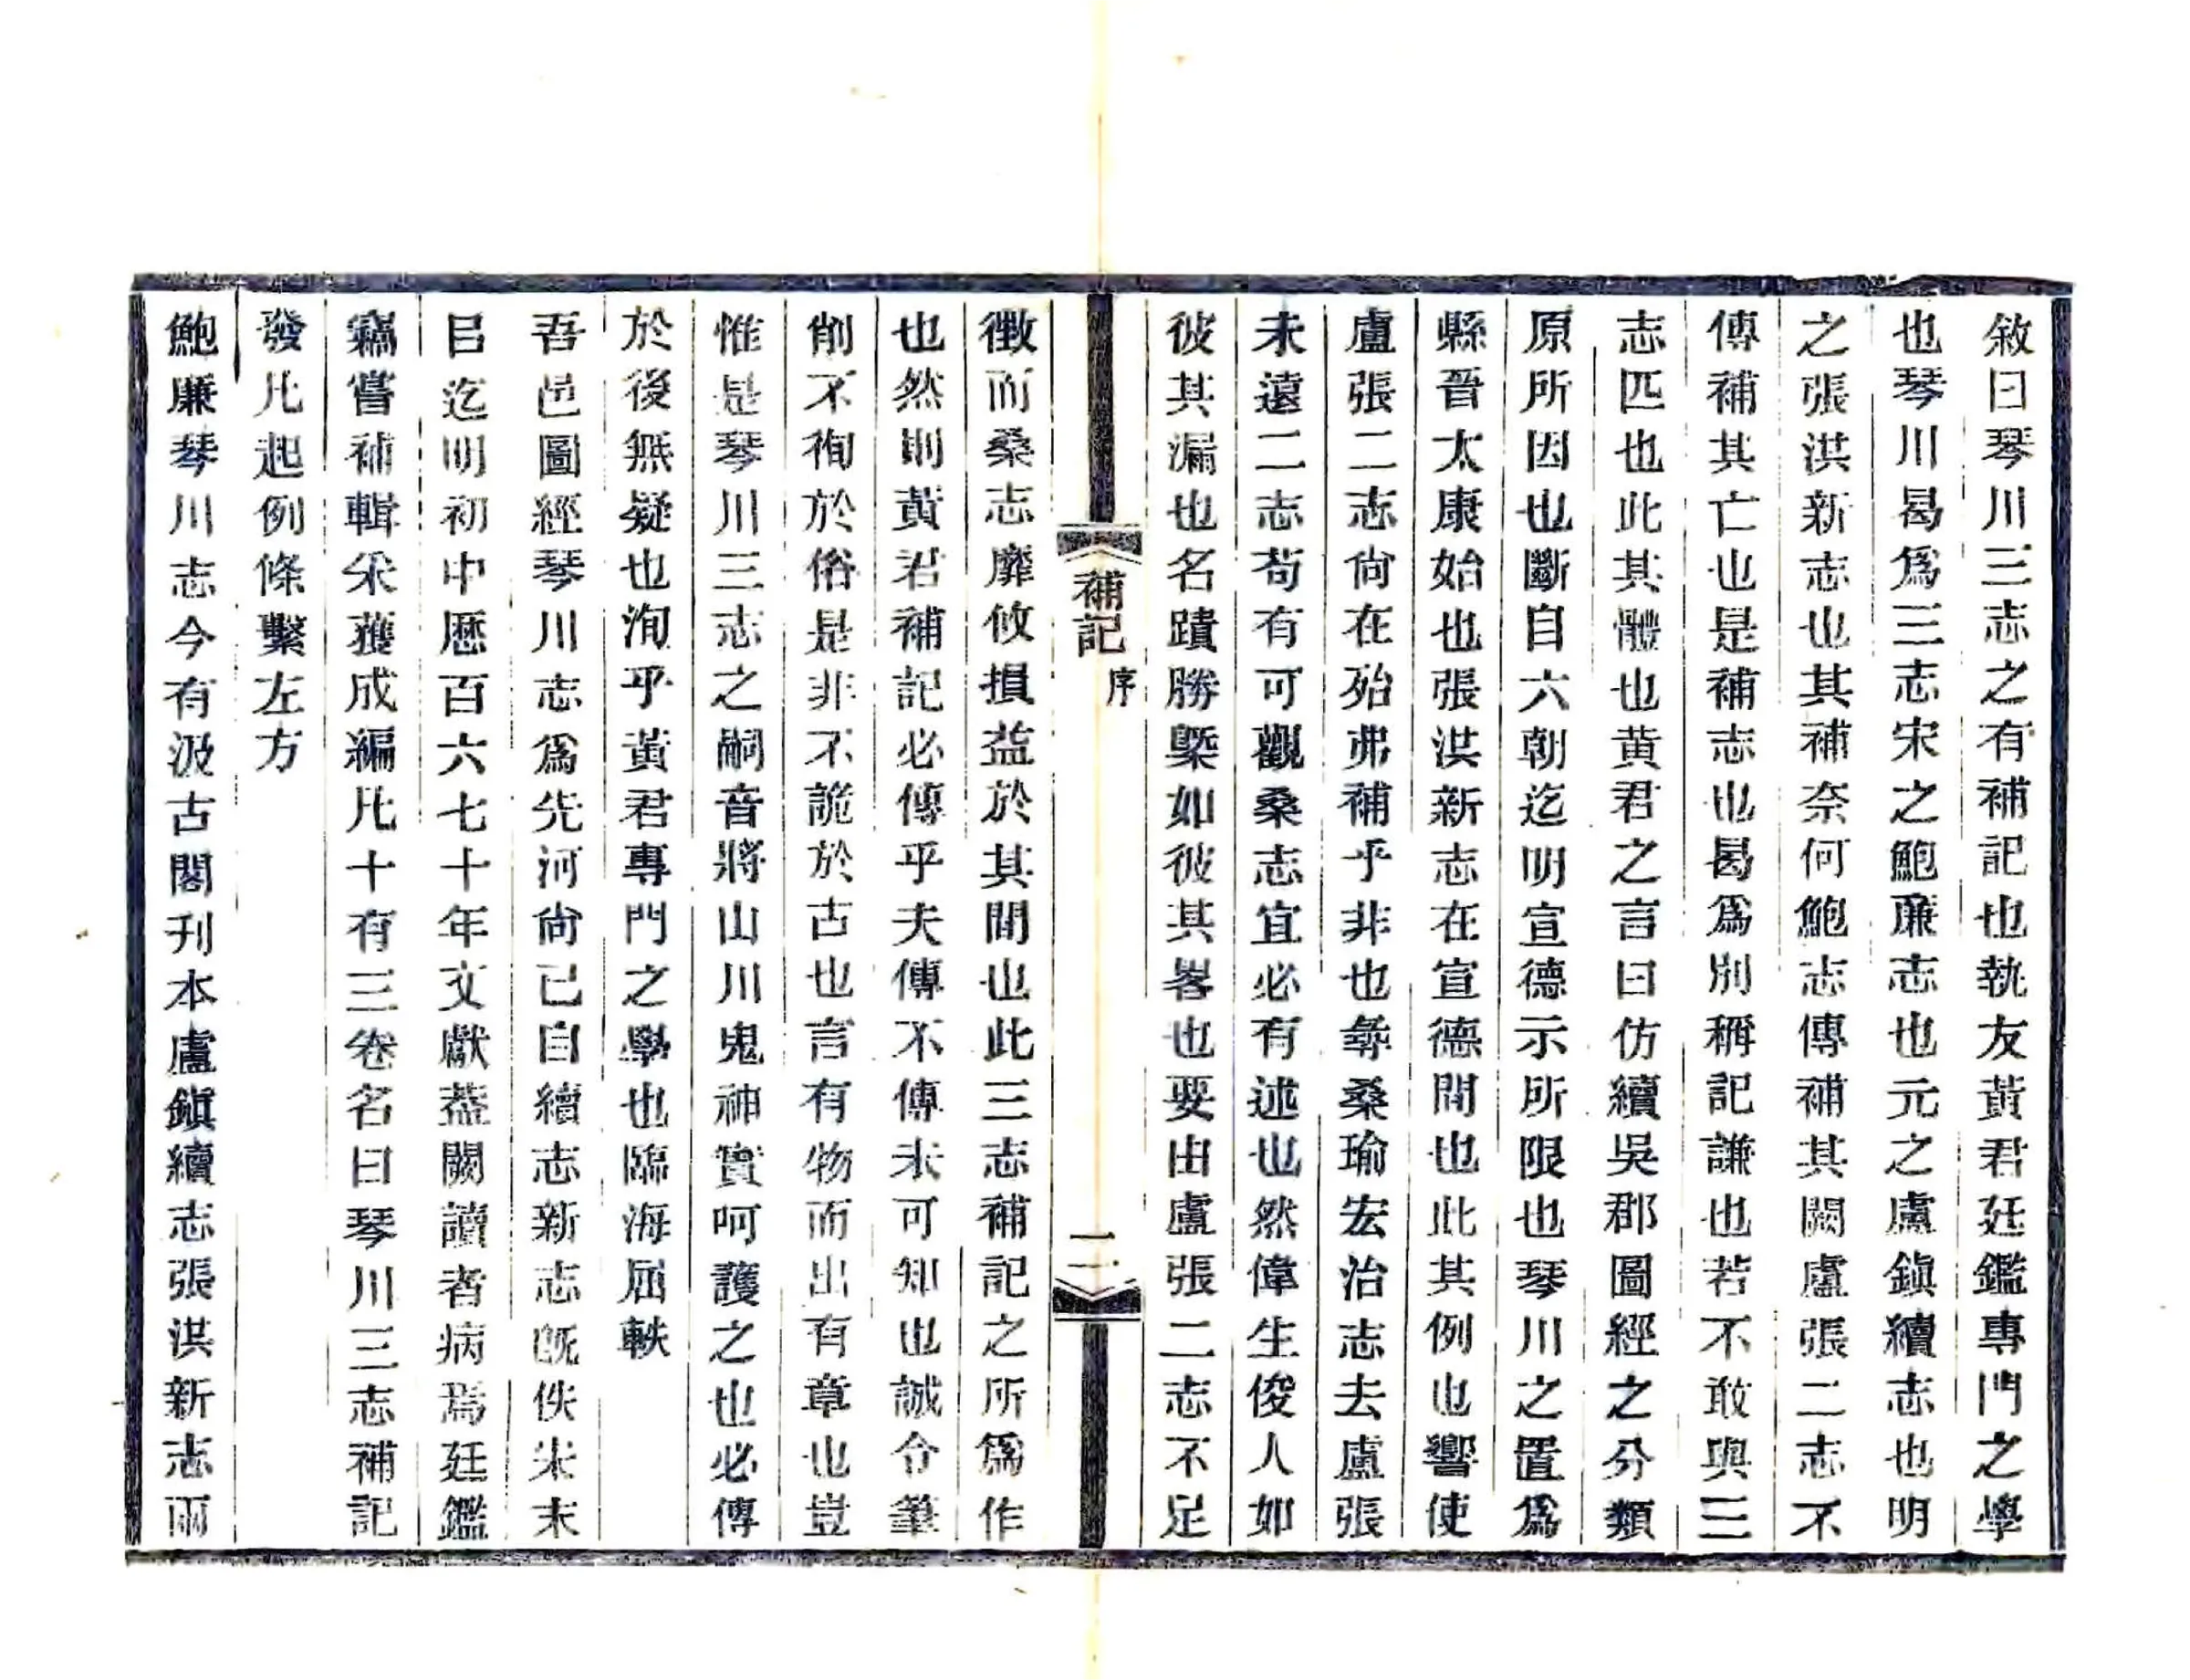 敘曰琴川三志之有補記也執友黃君廷鑑專門之學
也琴川曷爲三志宋之鮑廉志也元之盧鎭續志也明
之張洪新志也其補奈何鮑志傳補其闕盧張二志不
傳補其亡也是補志也曷爲別稱記謙也若不敢與三
志匹也此其體也黃君之言曰仿續吳郡圖經之分類
原所因也斷自六朝迄明宣德示所限也琴川之置爲
縣晉太康始也張洪新志在宣德間也此其例也響使
盧張二志尙在殆弗補乎非也夀桑瑜宏治志去盧張
未遠二志苟有可觀桑志宜必有述也然偉生俊人如
彼其漏也名蹟勝槩如彼其畧也要由盧張二志不足
補記
序
二
徵而桑志靡攸損益於其間也此三志補記之所爲作
也然則黃君補記必傳乎夫傳不傳未可知也誠令筆
削不徇於俗是非不詭於古也言有物而出有章也豈
惟是琴川三志之嗣音將山川鬼神實呵護之也必傳
於後無疑也洵乎黃君專門之學也臨海屈軼
吾邑圖經琴川志爲先河尙已自續志新志旣佚宋末
㠯迄明初中歷百六七十年文獻葢闕讀者病焉廷鑑
竊嘗補輯采蒦成編凡十有三卷名曰琴川三志補記
發凡起例條繫左方
鮑廉琴川志今有汲古閣刊本盧鎭續志張洪新志兩